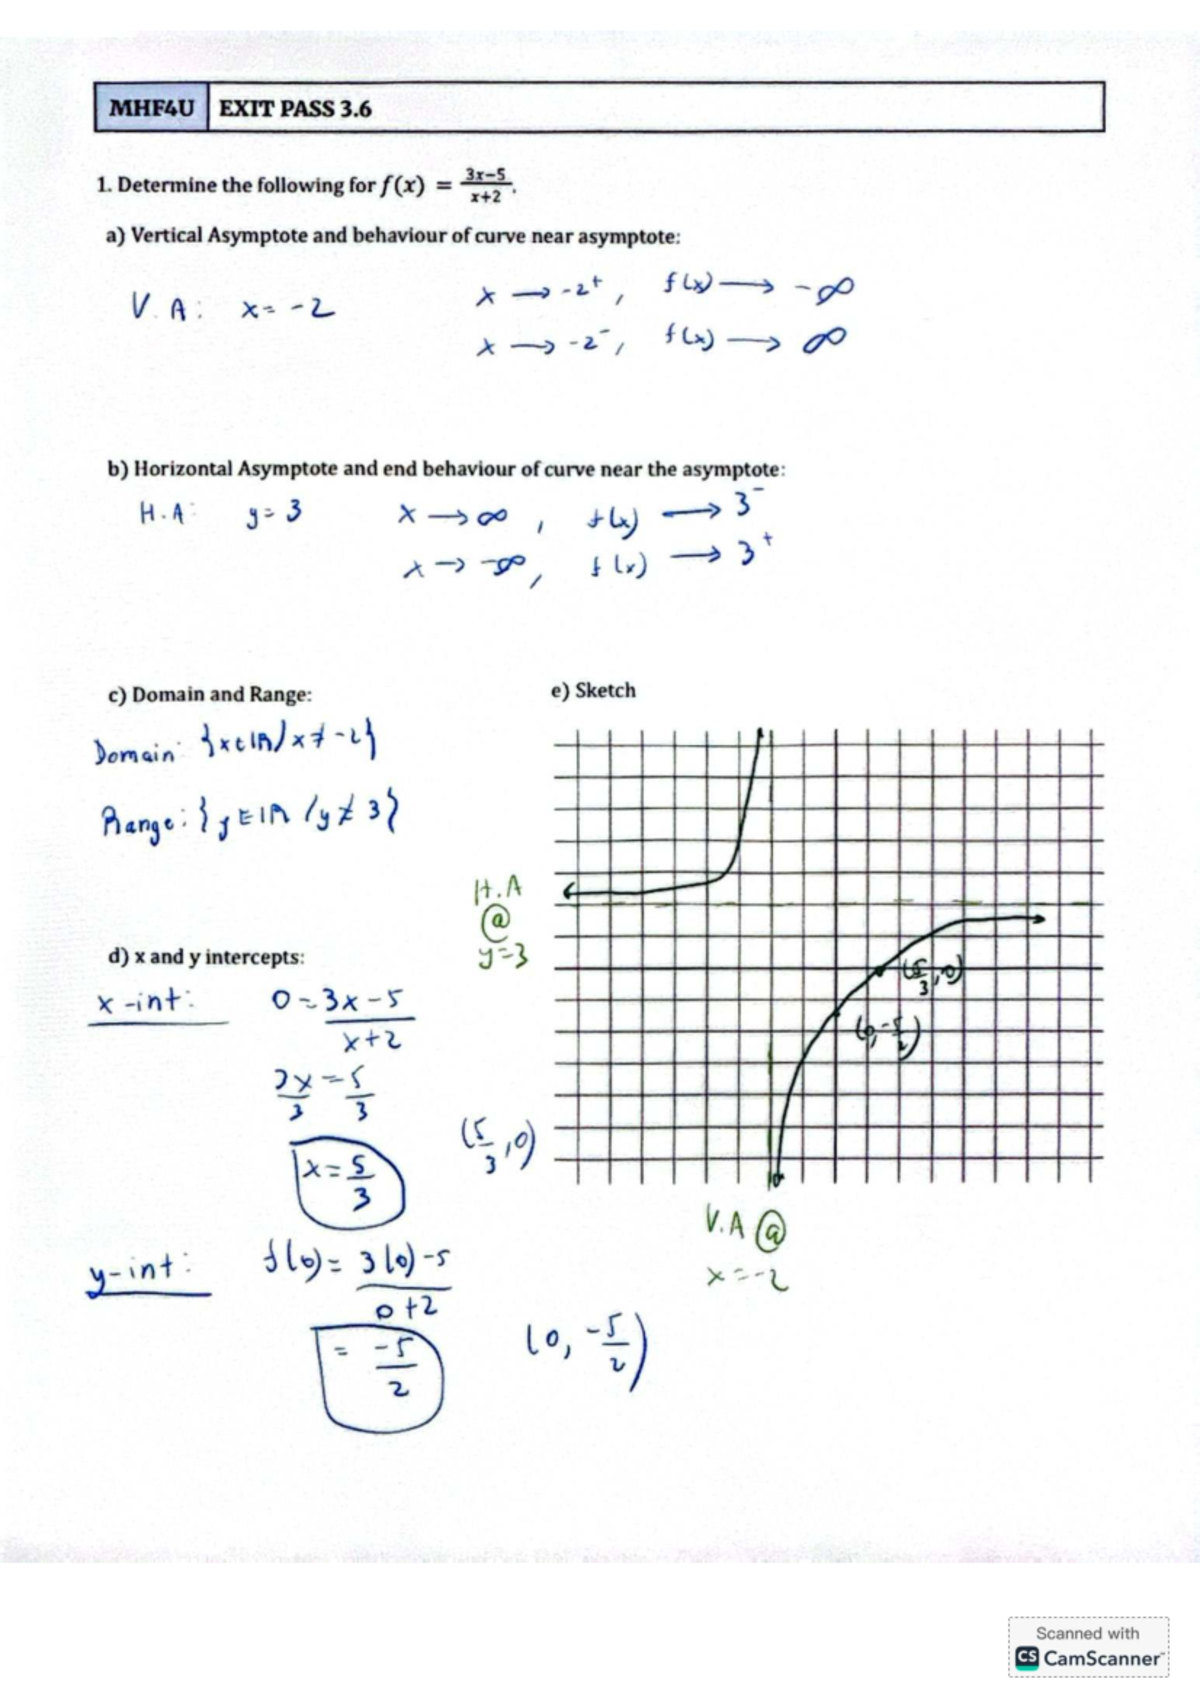 MHF4U EXIT PASS 3.6
1. Determine the following for f(x) = (3x-5)/(x+2).
a) Vertical Asymptote and behaviour of curve near asymptote:
V.A: x = -2
x → -2⁺, f(x) → -∞
x → -2⁻, f(x) → ∞
b) Horizontal Asymptote and end behaviour of curve near the asymptote:
H.A: y = 3
x → ∞, f(x) → 3⁻
x → -∞, f(x) → 3⁺
c) Domain and Range:
Domain: {x∈ℝ / x ≠ -2}
Range: {y∈ℝ / y ≠ 3}
d) x and y intercepts:
x-int: 0 = (3x-5)/(x+2)
3x/3 = 5/3
x = 5/3
(5/3, 0)
y-int: f(0) = (3(0)-5)/(0+2)
= -5/2
(0, -5/2)
e) Sketch
H.A
@
y=3
(5/3, 0)
(0, -5/2)
V.A @
x = -2
Scanned with
CS CamScanner